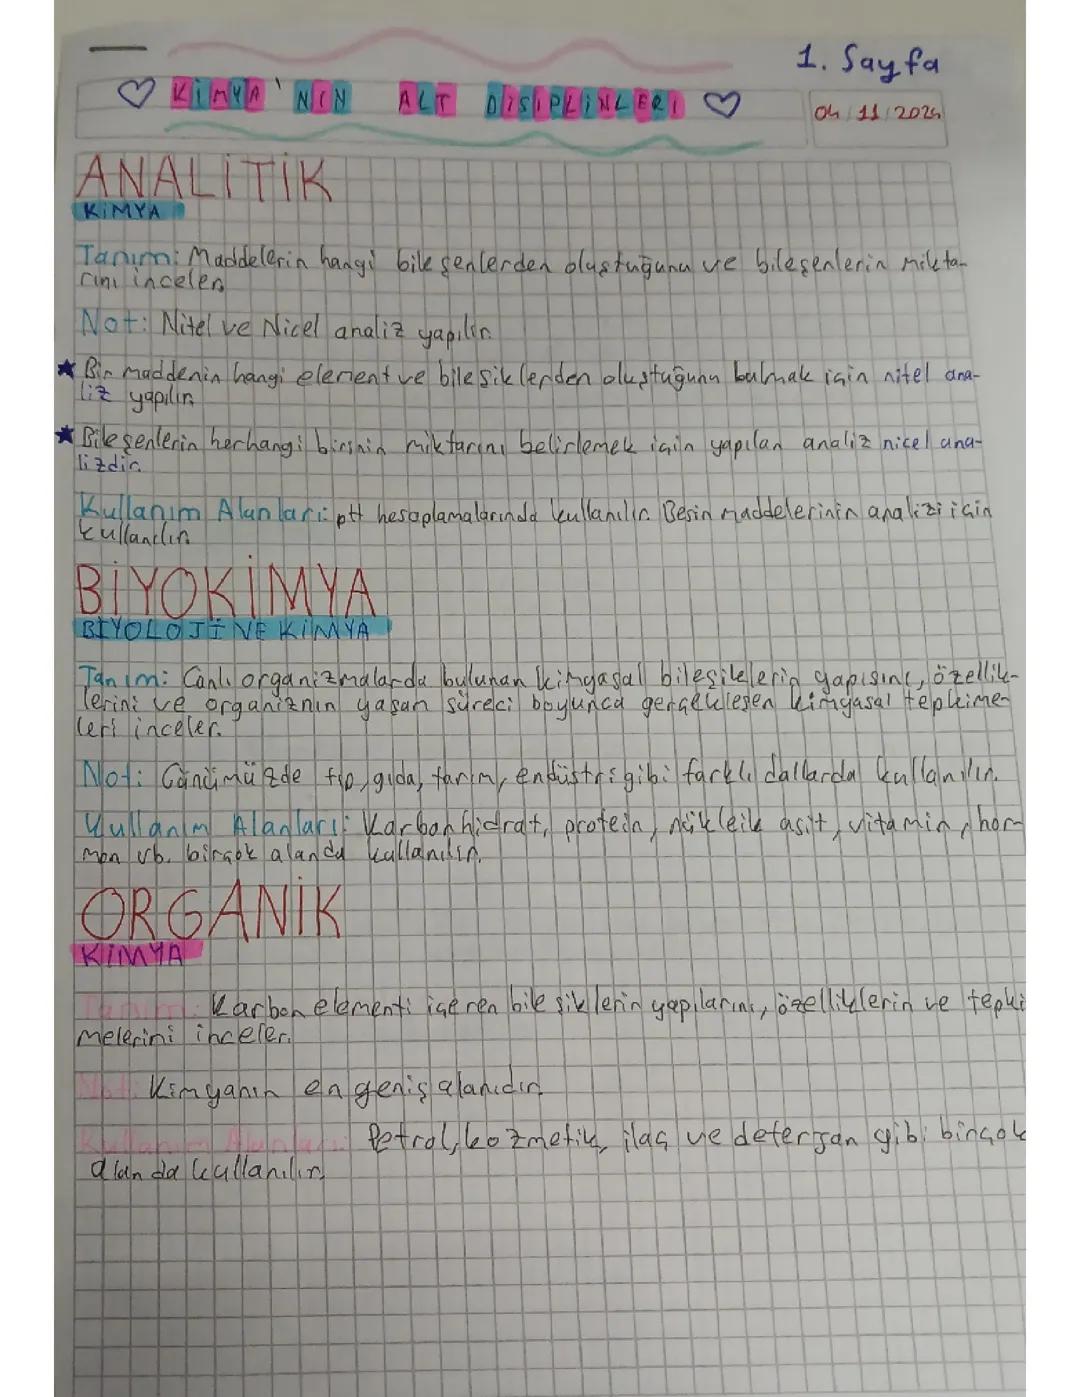 1. Sayfa
♡ KİMYA'NIN ALT DİSİPLİNLERİ ♡
04/11/2024
ANALİTİK
KİMYA
Tanım: Maddelerin hangi bileşenlerden oluştuğunu ve bileşenlerin mikta-
rını inceler.
Not: Nitel ve Nicel analiz yapılır.
★ Bir maddenin hangi element ve bileşiklerden oluştuğunu bulmak için nitel ana-
liz yapılır.
★ Bileşenlerin herhangi birinin miktarını belirlemek için yapılan analiz nicel ana-
lizdir.
Kullanım Alanları: pH hesaplamalarında kullanılır. Besin maddelerinin analizi için
kullanılır.
BİYOKİMYA
BİYOLOJİ VE KİMYA
Tanım: Canlı organizmalarda bulunan kimyasal bileşiklerin yapısını, özellik-
lerini ve organizmın yaşam süreci boyunca gerçekleşen kimyasal tepkime-
leri inceler.
Not: Günümüzde tıp, gıda, tarım, endüstri gibi farklı dallarda kullanılır.
Kullanım Alanları: Karbonhidrat, protein, nükleik asit, vitamin, hor-
mon vb. birçok alanda kullanılır.
ORGANİK
KİMYA
Tanım: Karbon elementi içeren bileşiklerin yapılarını, özelliklerin ve tepki
melerini inceler.
Not: Kimyanın en geniş alanıdır.
Kullanım Alanları: Petrol, kozmetik, ilaç ve deterjan gibi birçok
alanda kullanılır.